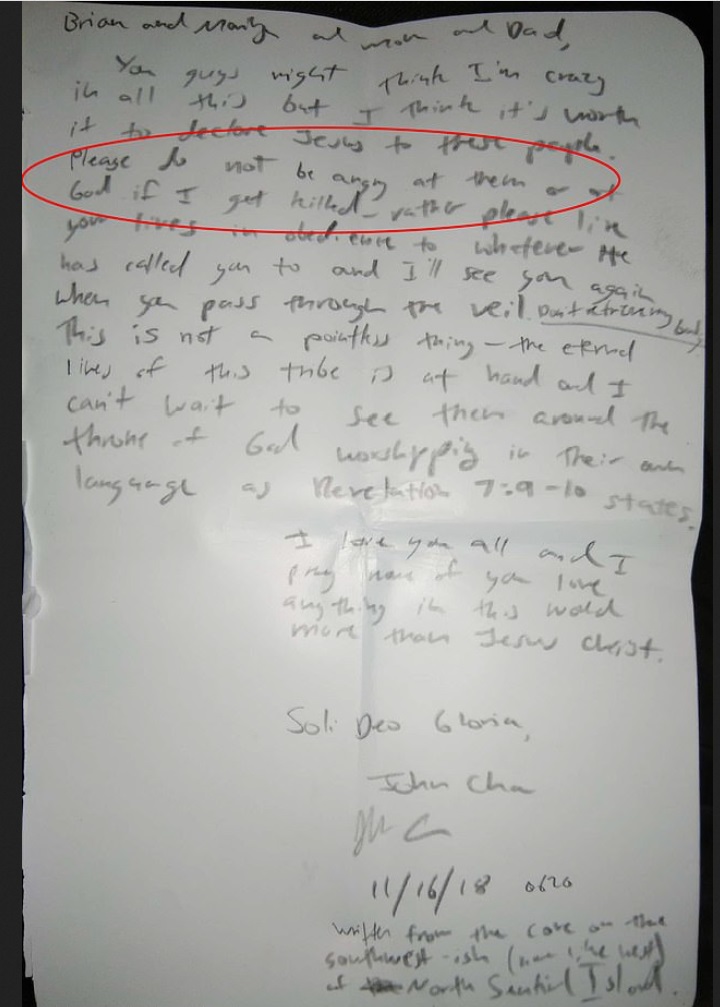 Brian and Marilyn and mom and Dad,
You guys might think I'm crazy
in all this but I think it's worth
it to declare Jesus to these people.
Please do not be angry at them or at
God if I get killed - rather please live
your lives in obedience to whatever He
has called you to and I'll see you again
when you pass through the veil. Don't
This is not a pointless thing - the eternal
lives of this tribe is at hand and I
can't wait to see them around the
throne of God worshipping in their own
language as Revelation 7:9-10 states.
I love you all and I
pray none of you love
anything in this world
more than Jesus Christ.
Soli Deo Gloria,
John Chau
JC
11/16/18 0620
written from the cove on the
southwest-ish (more like west)
of North Sentinel Island.